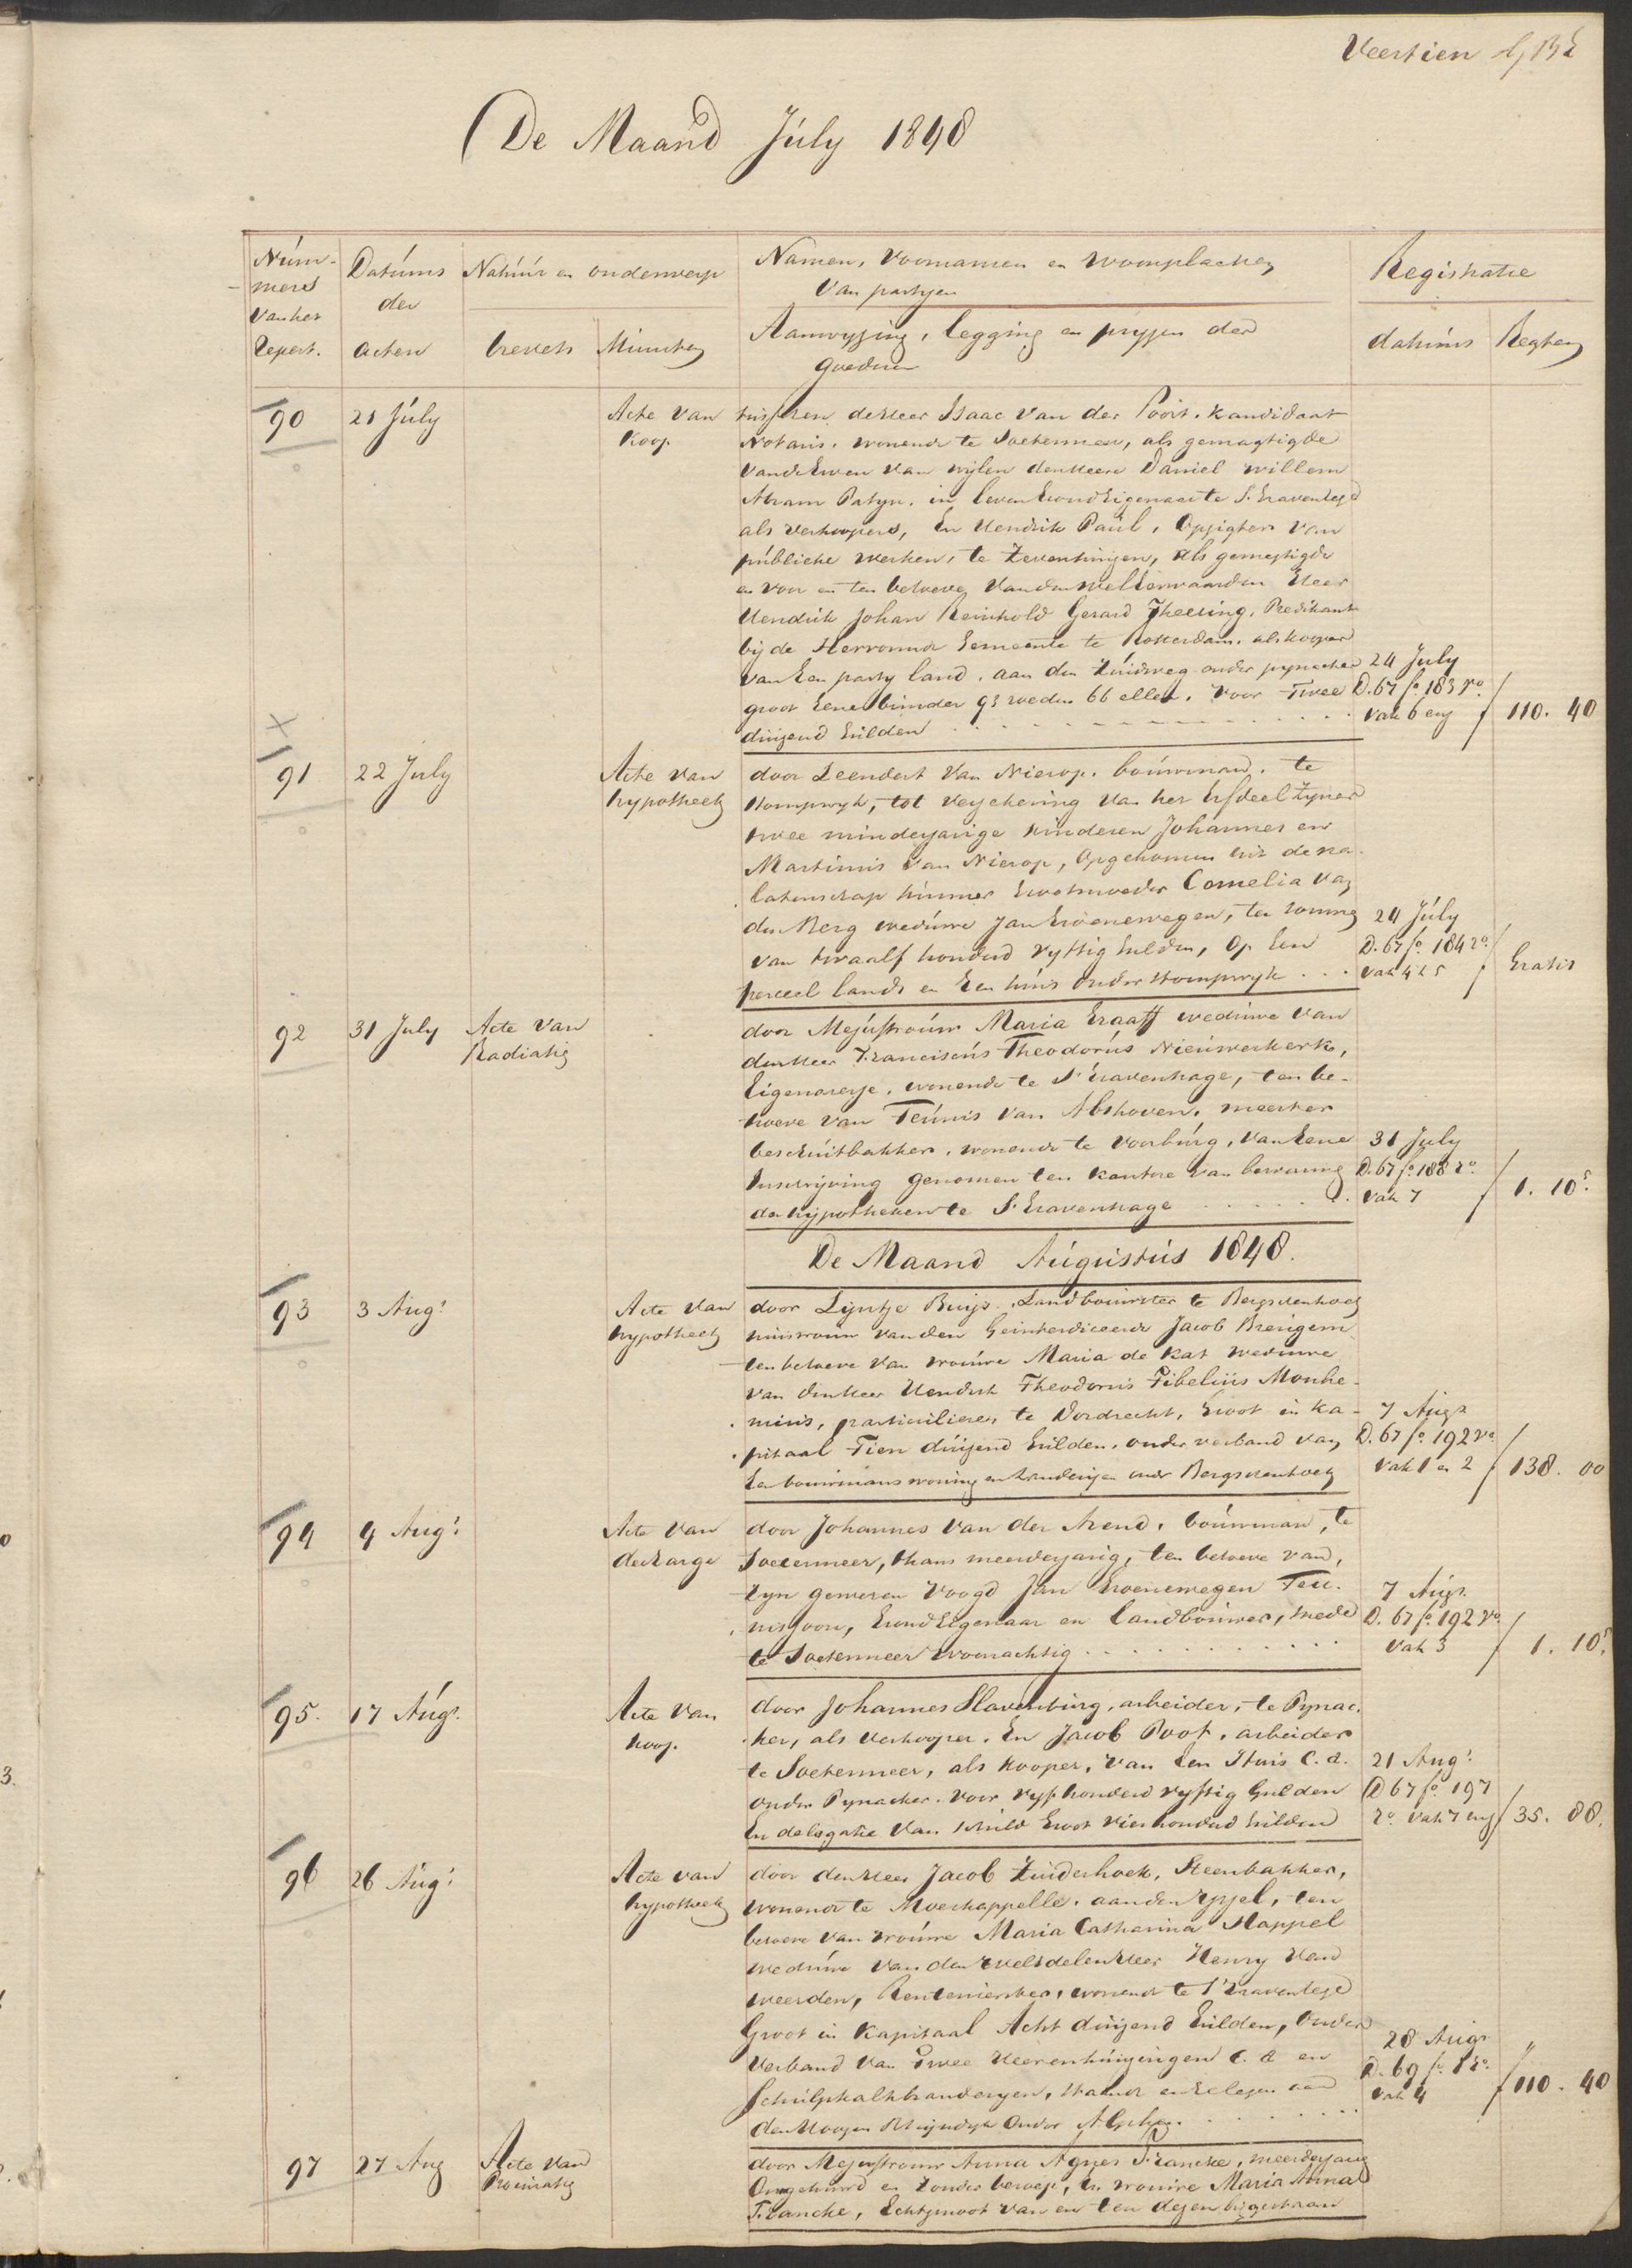 Veertien
De Maand July 1848
Num-
mers
van het
Repert.
Datums
der
acten
Natuur en onderwerp
brevets
Minuten
Namen, voornamen en woonplaatsen
van partyen
Aanwyzing, legging en pryzen der
goederen
Registratie
datums
Regten
90
21 July
Acte van
Koop
tusschen den Heer Isaac van der Poort, kandidaat
Notaris, wonende te Soetermeer, als gemagtigde
van de Erven van wylen den Heere Daniel Willem
Abram Patyn, in leven Grond Eigenaar te S. Gravenhage
als verkoopers, En Hendrik Paul, Opzigter van
publieke werken, te Zevenhuizen, als gemagtigde
en voor en ten behoeve van den WelEerwaarden Heer
Hendrik Johan Reinhold Gerard Theesing, Predikant
bij de Hervormde Gemeente te Rotterdam, als kooper
van Een party land, aan den Zuidweg onder pynacker
groot Eene bunder 93 roeden 66 ellen, voor Twee
duizend Gulden
24 July
D. 67 fo. 183 Vo.
vak 6 env
110. 40
91
22 July
Acte van
hypotheek
door Leendert van Nierop, bouwman, te
Stompwyk, tot verzekering van het Erfdeel zyner
twee minderjarige kinderen Johannes en
Martinus van Nierop, Opgekomen uit de na-
latenschap hunner Grootmoeder Cornelia van
den Berg weduwe Jan Groenewegen, ter somme
van twaalf honderd vyftig Gulden, Op Een
perceel lands en Een huis onder Stompwyk
24 July
D. 67 fo. 184 ro.
vak 4 & 5
Gratis
92
31 July
Acte van
Radiatie
door Mejufvrouw Maria Graaff weduwe van
den Heer Franciscus Theodorus Nieuwerkerk,
Eigenaresse, wonende te S'Gravenhage, ten be-
hoeve van Teunis van Abshoven, meester
beschuitbakker, wonende te Voorburg, van Eene
Inschrijving genomen ten kantore van bewaring
der hypotheken te S'Gravenhage
31 July
D. 67 fo. 188 ro.
vak 7
1. 10 5
De Maand Augustus 1848.
93
3 Aug:
Acte van
hypotheek
door Lijntje Buijs, Landbouwster te Bergschenhoek
huisvrouw van den Geinterdiceerde Jacob Breugem
ten behoeve van vrouwe Maria de Kat weduwe
van den Heer Hendrik Theodorus Tibelius Monhe-
mius, particuliere, te Dordrecht, Groot in ka-
pitaal Tien duizend Gulden, onder verband van
Een bouwmanswoning en Landerijen onder Bergschenhoek
7 Aug.
D. 67 fo. 192 ro
vak 1 en 2
138. 00
94
4 Aug:
Acte van
decharge
door Johannes van der Arend, bouwman, te
Soetermeer, thans meerderjarig, ten behoeve van,
Zyn gewezen voogd Jan Groenewegen Teu-
niszoon, Grond Eigenaar en landbouwer, mede
te Soetermeer woonachtig
7 Aug.
D. 67 fo. 192 Vo.
vak 3
1. 10 5
95.
17 Aug.
Acte van
koop.
door Johannes Slavenburg, arbeider, te Pynac-
ker, als verkooper, En Jacob Poot, arbeider
te Soetermeer, als kooper, van Een Huis C. a.
onder Pynacker, voor vyf honderd vyftig Gulden
En delegatie van schuld Groot vier honderd Gulden
21 Aug:
D 67 fo. 197
ro. vak 7 env
35. 88.
96
26 Aug:
Acte van
hypotheek
door den Heer Jacob Zuiderhoek, Steenbakker,
wonende te Moerkappelle, aan den Yssel, ten
behoeve van vrouwe Maria Catharina Stappel
weduwe van den WelEdelen Heer Henry van
Weerden, Rentenierster, wonende te S'Gravenhage
Groot in Kapitaal Acht duizend Gulden, Onder
Verband van Twee Heerenhuizingen C. a en
Schulpkalkbranderyen, staande en Gelegen aan
den Hoogen Rhijndyk Onder Alphen.
28 Aug.
D. 69 fo. 8 ro.
vak 4
110. 40
97
27 Aug
Acte van
Procuratie
door Mejufvrouw Anna Agnes Francke, meerderjarig
Ongehuwd en zonder beroep, En vrouwe Maria Anna
Francke, Echtgenoot van en ten dezen bijgestaan